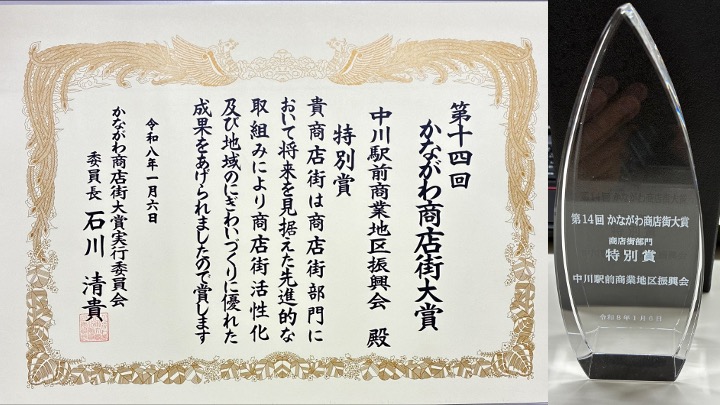 第十四回
かながわ商店街大賞
中川駅前商業地区振興会 殿
特別賞
貴商店街は商店街部門に
おいて将来を見据えた先進的な
取組みにより商店街活性化
及び地域のにぎわいづくりに優れた
成果をあげられましたので賞します
令和八年一月六日
かながわ商店街大賞実行委員会
委員長 石川 清貴
第14回 かながわ商店街大賞
商店街部門
特別賞
中川駅前商業地区振興会
令和8年1月6日